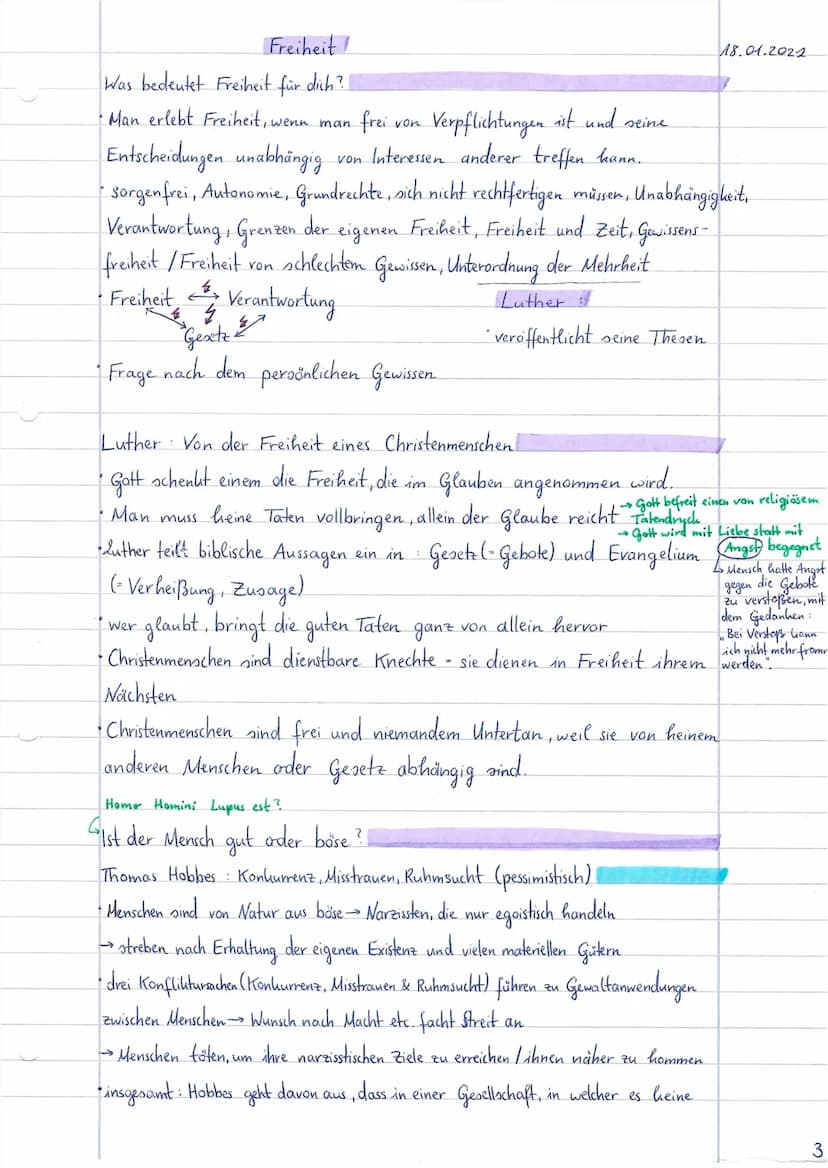 Freiheit!
18.01.2022
Was bedeutet Freiheit für dich?
· Man erlebt Freiheit, wenn man frei von Verpflichtungen ist und seine
Entscheidungen unabhängig von Interessen anderer treffen kann.
· sorgenfrei, Autonomie, Grundrechte, sich nicht rechtfertigen müssen, Unabhängigkeit,
Verantwortung, Grenzen der eigenen Freiheit, Freiheit und Zeit, Gewissens-
freiheit / Freiheit von schlechtem Gewissen, Unterordnung der Mehrheit
· Freiheit ↔ Verantwortung
Gesetz
Luther:
· veröffentlicht seine Thesen
· Frage nach dem persönlichen Gewissen
Luther: Von der Freiheit eines Christenmenschen
· Gott schenkt einem die Freiheit, die im Glauben angenommen wird.
· Man muss keine Taten vollbringen, allein der Glaube reicht
→ Gott befreit einen von religiösem
Tatendruck
→ Gott wird mit Liebe statt mit
Angst begegnet
· Luther teilt biblische Aussagen ein in: Gesetz (= Gebote) und Evangelium
(= Verheißung, Zusage)
↳ Mensch hatte Angst
gegen die Gebote
zu verstoßen, mit
dem Gedanken:
„Bei Verstoß kann
ich nicht mehr fromm
werden".
· wer glaubt, bringt die guten Taten ganz von allein hervor
· Christenmenschen sind dienstbare Knechte - sie dienen in Freiheit ihrem
Nächsten
· Christenmenschen sind frei und niemandem Untertan, weil sie von keinem
anderen Menschen oder Gesetz abhängig sind.
Homo Homini Lupus est?
↳ Ist der Mensch gut oder böse?
Thomas Hobbes: Konkurrenz, Misstrauen, Ruhmsucht (pessimistisch)
· Menschen sind von Natur aus böse → Narzissten, die nur egoistisch handeln
→ streben nach Erhaltung der eigenen Existenz und vielen materiellen Gütern
· drei Konfliktursachen (Konkurrenz, Misstrauen & Ruhmsucht) führen zu Gewaltanwendungen
zwischen Menschen → Wunsch nach Macht etc. facht Streit an
→ Menschen töten, um ihre narzisstischen Ziele zu erreichen / ihnen näher zu kommen
· insgesamt: Hobbes geht davon aus, dass in einer Gesellschaft, in welcher es keine
3